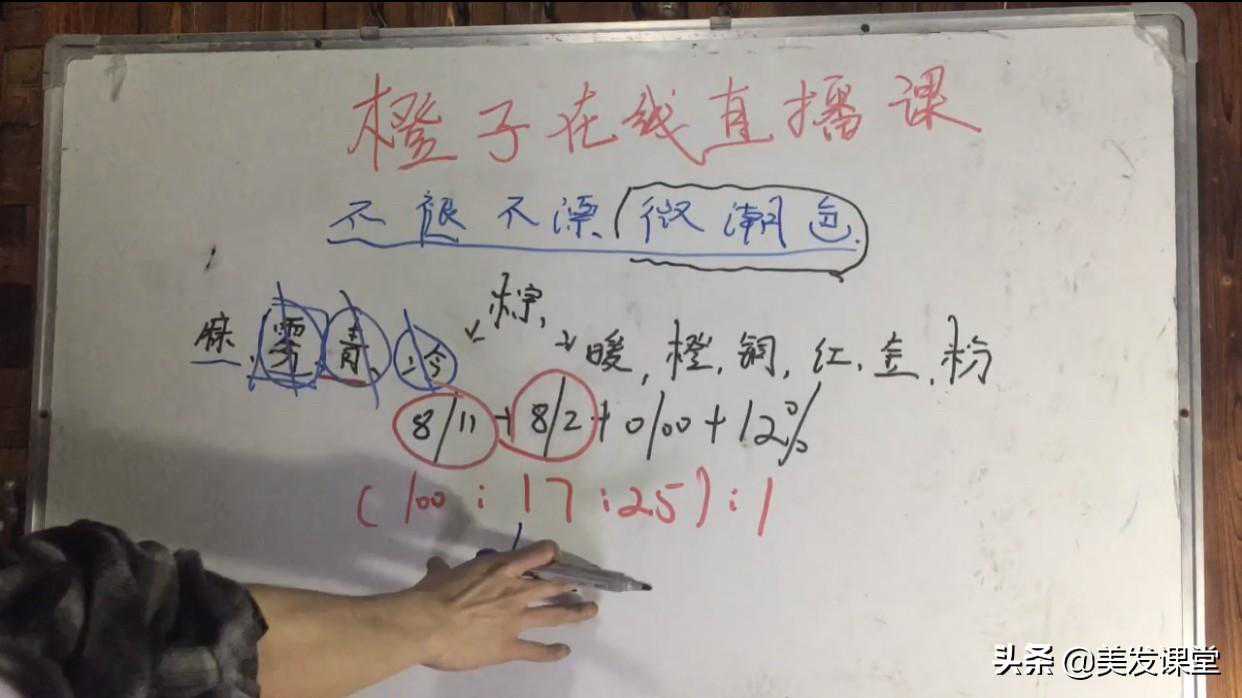 橙子在线直播课
不褪不漂(微潮色)
棕,
麻,雾,青,冷
暖,橙,铜,红,金,粉
8/11+8/2+0/00+12%
(100:17:25):1
头条 @美发课堂